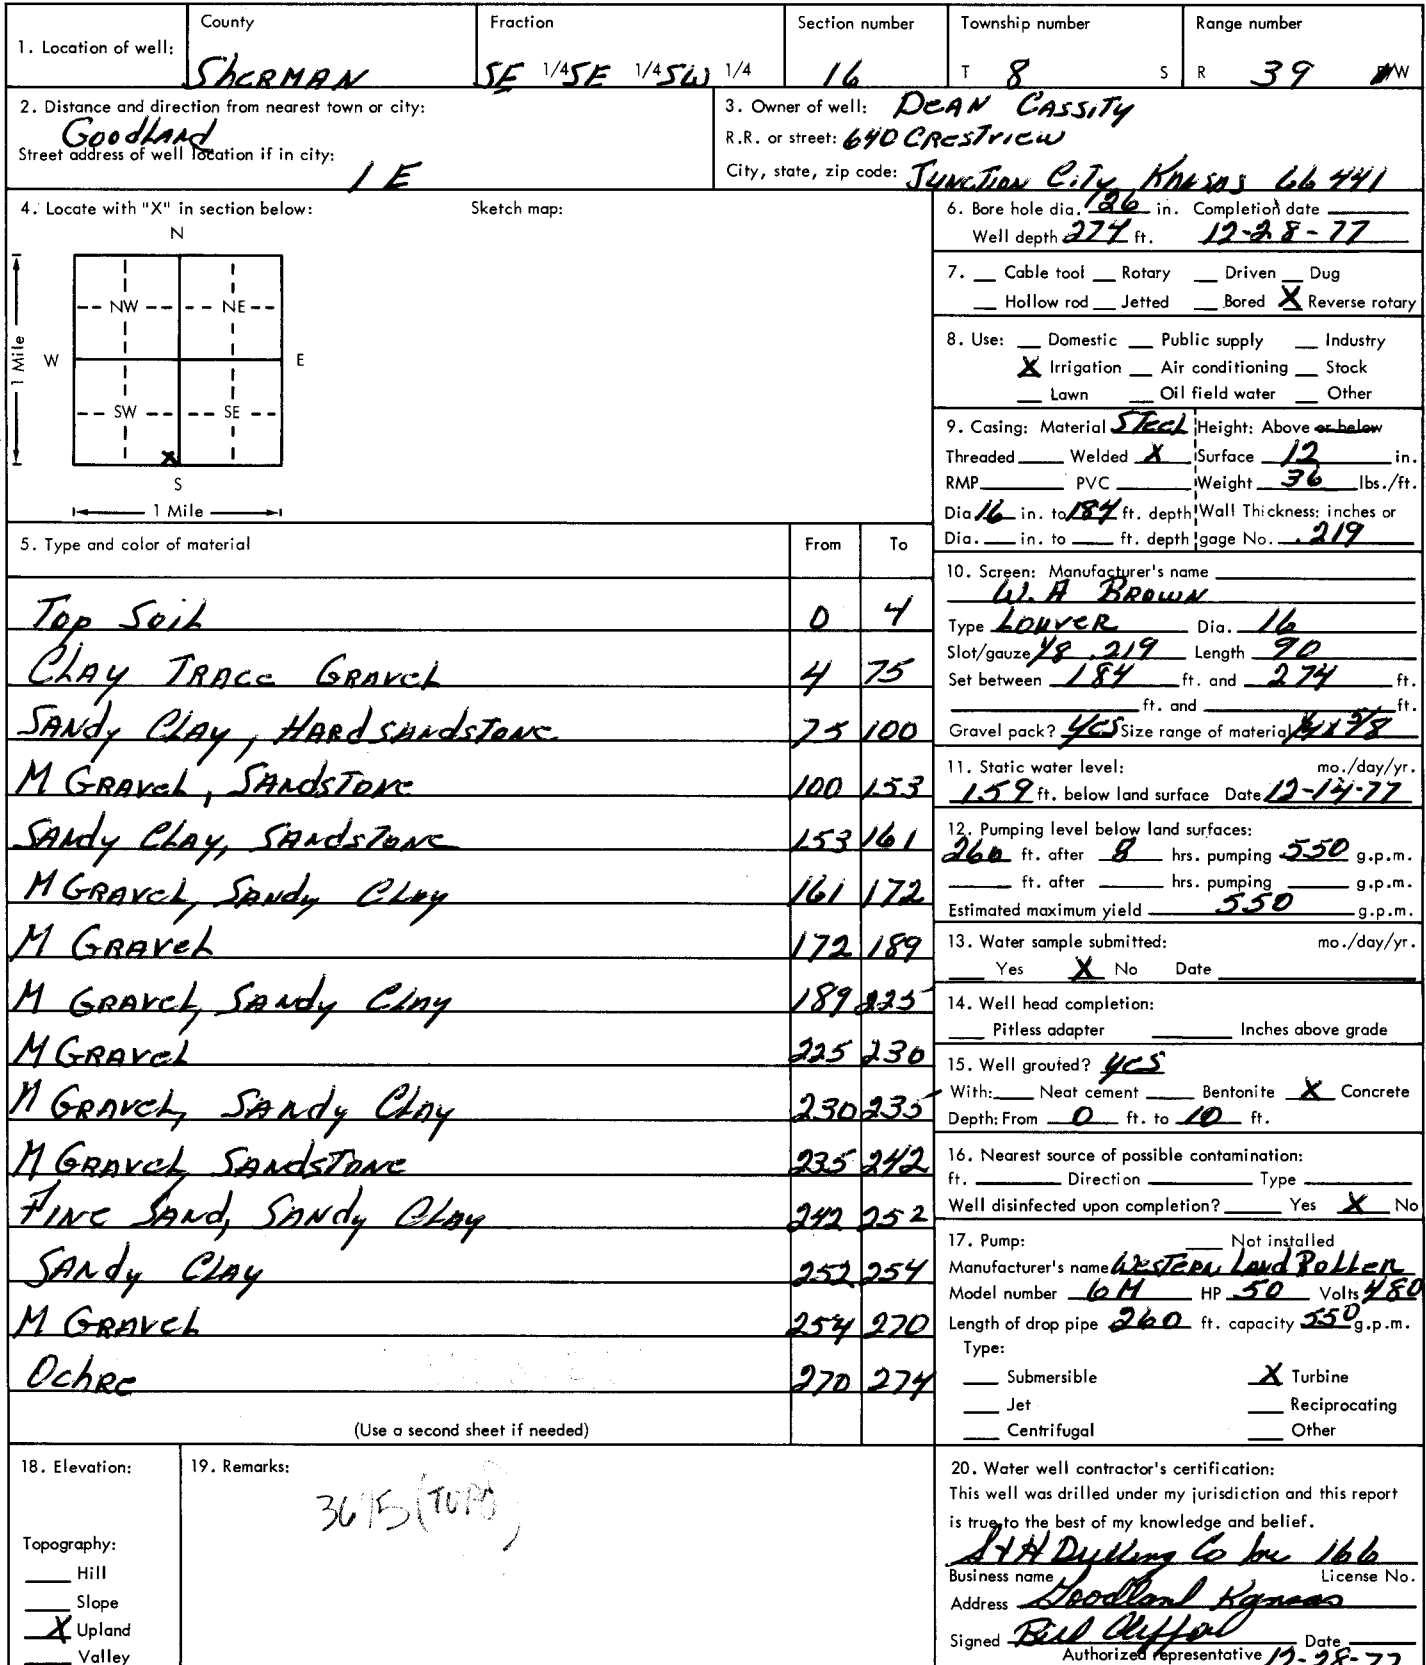 1. Location of well: County Sherman Fraction SE 1/4 SE 1/4 SW 1/4 Section number 16 Township number T 8 S Range number R 39 W
2. Distance and direction from nearest town or city: Goodland
Street address of well location if in city: 1 E
3. Owner of well: Dean Cassity
R.R. or street: 640 Crestview
City, state, zip code: Junction City, Kansas 66441
4. Locate with "X" in section below: Sketch map:
N
NW NE
W E
1 Mile
SW SE
X
S
1 Mile
5. Type and color of material From To
Top Soil 0 4
Clay Trace Gravel 4 75
Sandy Clay, Hard sandstone 75 100
M Gravel, Sandstone 100 153
Sandy Clay, Sandstone 153 161
M Gravel, Sandy Clay 161 172
M Gravel 172 189
M Gravel, Sandy Clay 189 225
M Gravel 225 230
M Gravel, Sandy Clay 230 235
M Gravel, Sandstone 235 242
Fine Sand, Sandy Clay 242 252
Sandy Clay 252 254
M Gravel 254 270
Ochre 270 274
(Use a second sheet if needed)
6. Bore hole dia. 26 in. Completion date
Well depth 274 ft. 12-28-77
7. Cable tool Rotary Driven Dug
Hollow rod Jetted Bored X Reverse rotary
8. Use: Domestic Public supply Industry
X Irrigation Air conditioning Stock
Lawn Oil field water Other
9. Casing: Material Steel Height: Above or below
Threaded Welded X Surface 12 in.
RMP PVC Weight 36 lbs./ft.
Dia 16 in. to 184 ft. depth Wall Thickness: inches or
Dia. in. to ft. depth gage No. .219
10. Screen: Manufacturer's name
W. A Brown
Type Louver Dia. 16
Slot/gauze 1/8 .219 Length 90
Set between 184 ft. and 274 ft.
ft. and ft.
Gravel pack? yes Size range of material 1/4 x 3/8
11. Static water level: mo./day/yr.
159 ft. below land surface Date 12-14-77
12. Pumping level below land surfaces:
260 ft. after 8 hrs. pumping 550 g.p.m.
ft. after hrs. pumping g.p.m.
Estimated maximum yield 550 g.p.m.
13. Water sample submitted: mo./day/yr.
Yes X No Date
14. Well head completion:
Pitless adapter Inches above grade
15. Well grouted? yes
With: Neat cement Bentonite X Concrete
Depth: From 0 ft. to 10 ft.
16. Nearest source of possible contamination:
ft. Direction Type
Well disinfected upon completion? Yes X No
17. Pump: Not installed
Manufacturer's name Western Land Roller
Model number 6M HP 50 Volts 480
Length of drop pipe 260 ft. capacity 550 g.p.m.
Type:
Submersible X Turbine
Jet Reciprocating
Centrifugal Other
18. Elevation:
Topography:
Hill
Slope
X Upland
Valley
19. Remarks:
3675 (TOPO)
20. Water well contractor's certification:
This well was drilled under my jurisdiction and this report
is true to the best of my knowledge and belief.
S & H Drilling Co Inc 166
Business name License No.
Address Goodland Kansas
Signed Bill Date
Authorized representative 12-28-77